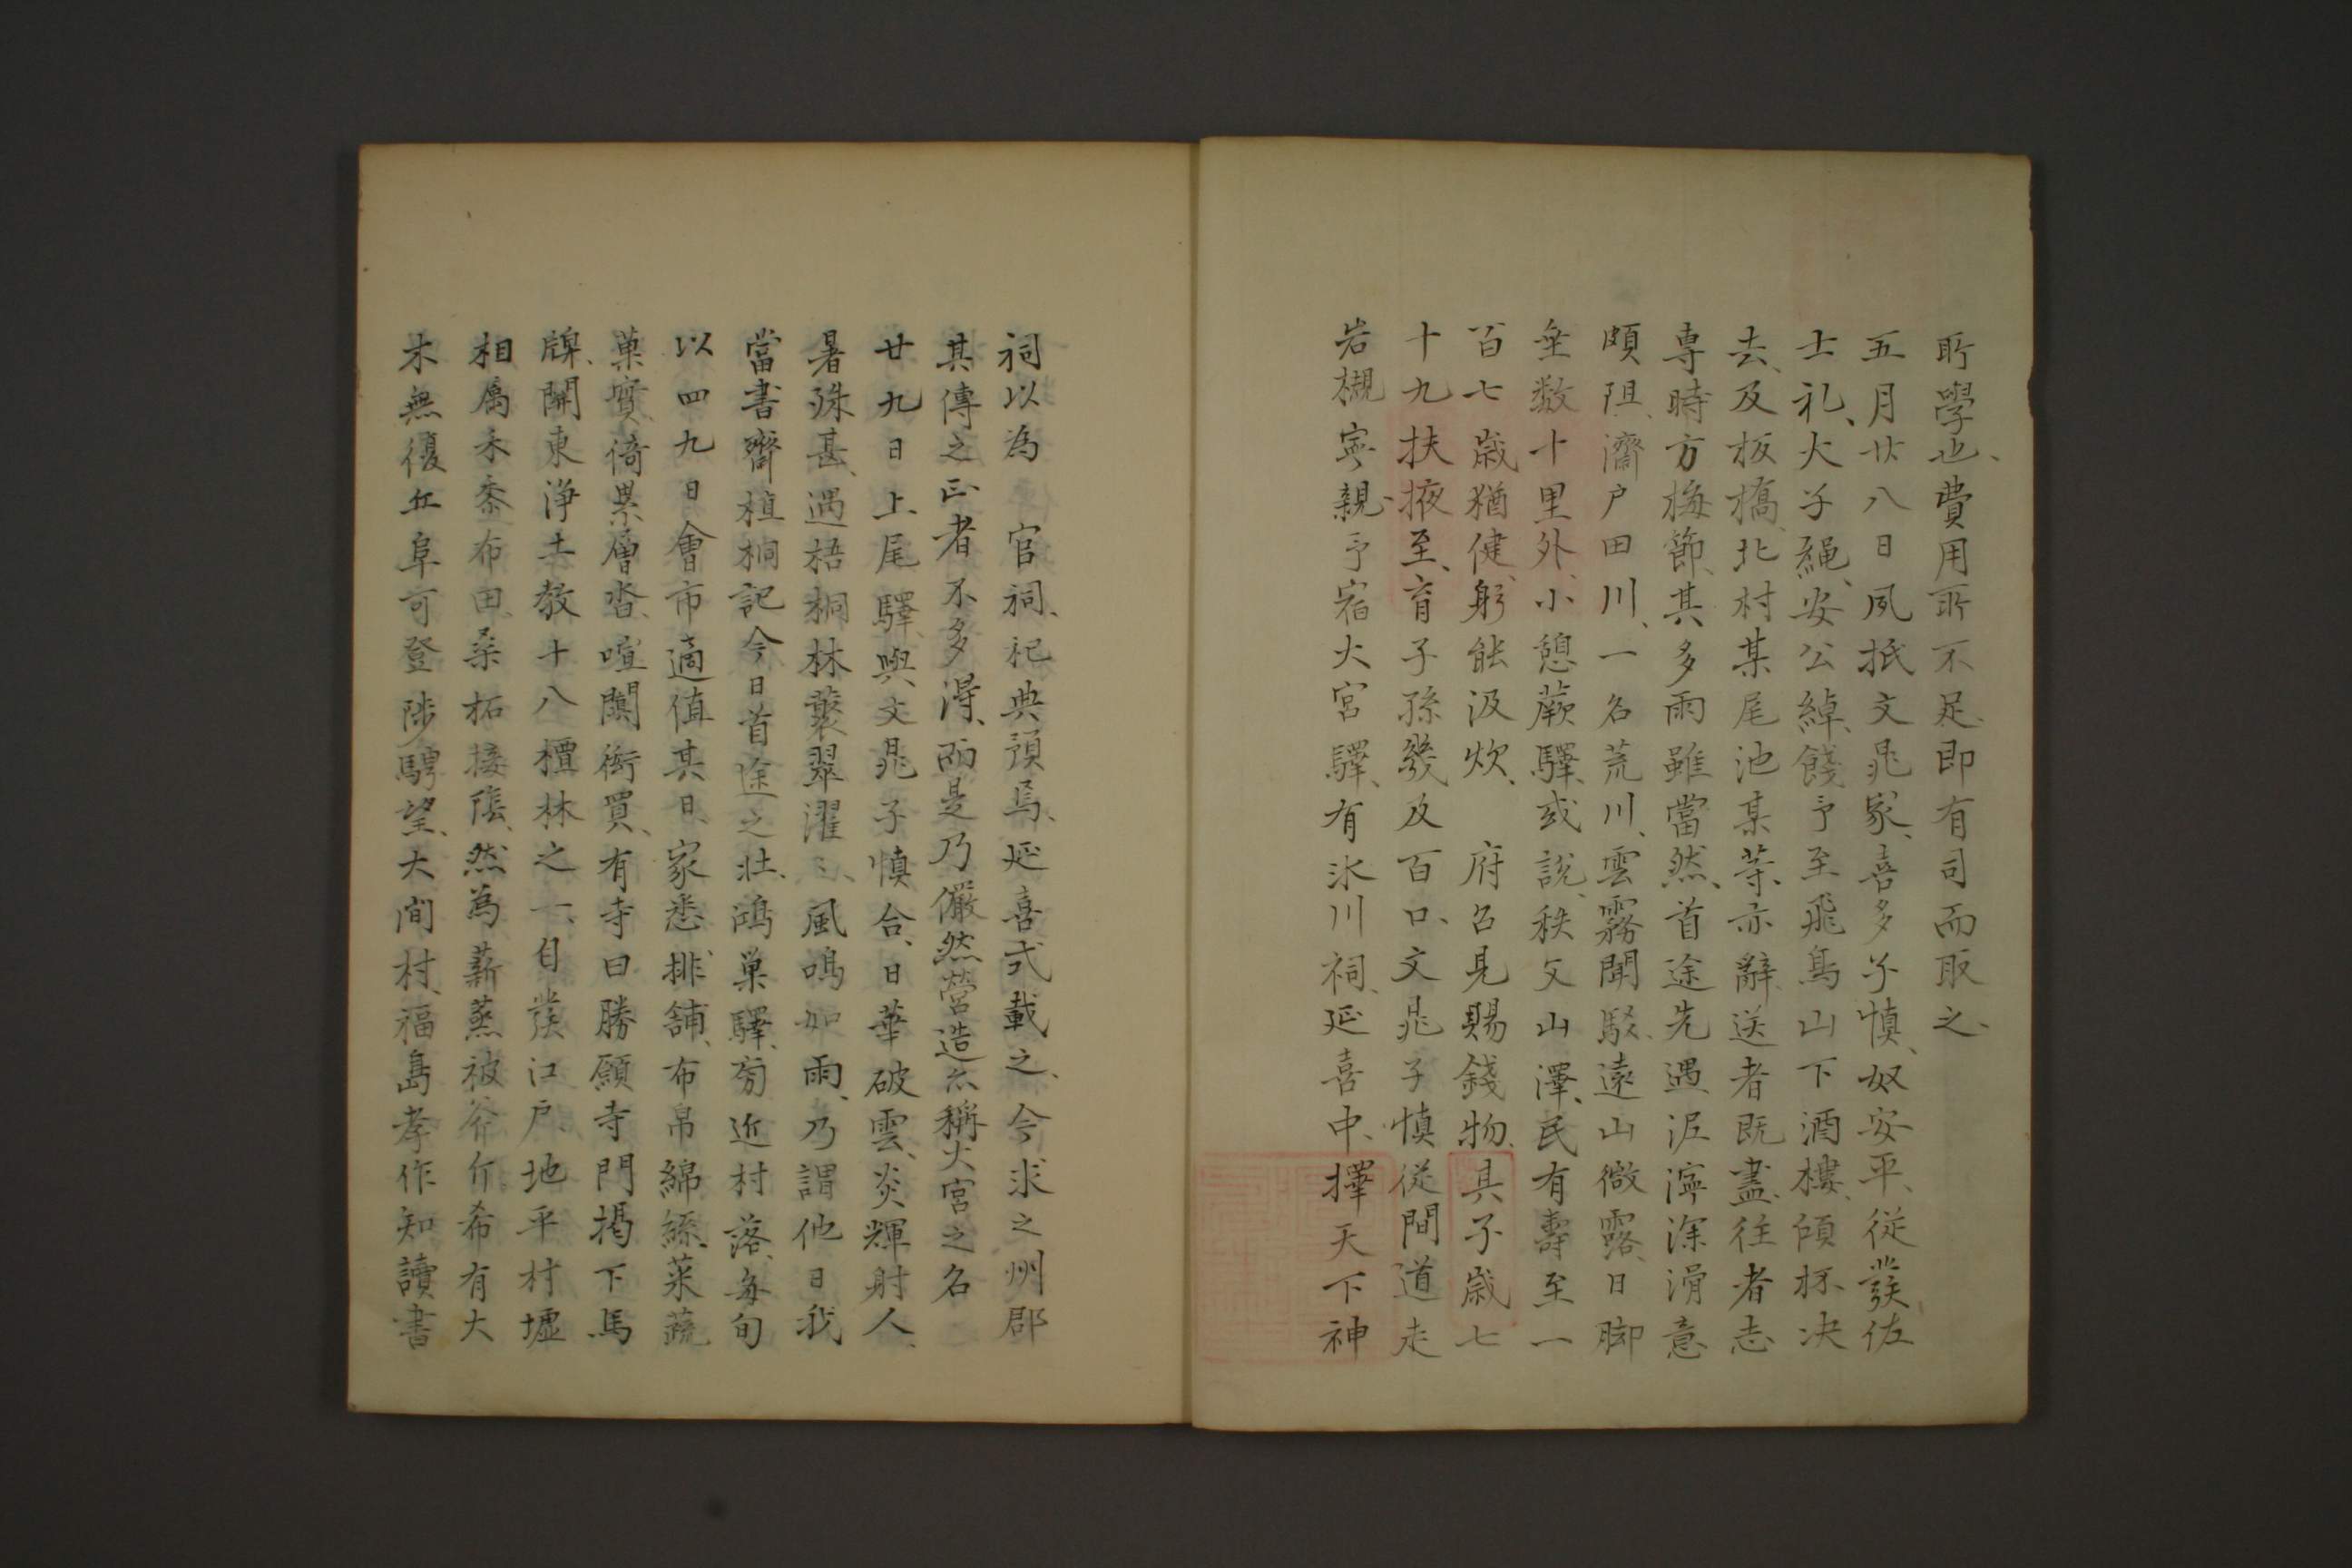 所學也、費用所不足、即有司而取之、
五月廿八日夙抵文晁家、喜多子慎、奴安平、従發佐
士礼、大子繩、安公綽、餞予至飛鳥山下酒樓、傾杯決
去、及板橋、北村某尾池某等、亦辭送者既盡、往者志
専時方梅節、其多雨雖當然、首途先遇泥濘深滑意
頗阻、濟戸田川、一名荒川、雲霧開駁、遠山微露、日脚
垂数十里外、小憩蕨驛、或說、秩父山澤、民有壽至一
百七歳猶健、躬能汲炊、 府召見賜錢物、其子歳七
十九扶掖至、育子孫幾及百口、文晁子慎従間道走
岩槻寧親、予宿大宮驛、有氷川祠、延喜中、擇天下神
祠以為 官祠、祀典預焉、延喜式載之、今求之州郡
其傳之正者不多得、而是乃儼然營造亦稱大宮之名
廿九日上尾驛、與文晁子慎合、日華破雲、炎輝射人、
暑殊甚、遇梧桐林蘙翠濯〻、風鳴如雨、乃謂他日我
當書齋植桐記今日首途之壮、鴻巣驛、旁近村落、毎旬
以四九日會市適值其日、家悉排舗、布帛綿絲、菜蔬
菓實、倚累層沓、喧闐衒買、有寺曰勝願寺門掲下馬
牌、關東淨土教十八檀林之一、自發江戸、地平村墟
相属禾黍布田、桑柘接蔭、然為薪蒸被斧斤、希有大
木無復丘阜可登陟騁望、大間村、福島孝作知讀書